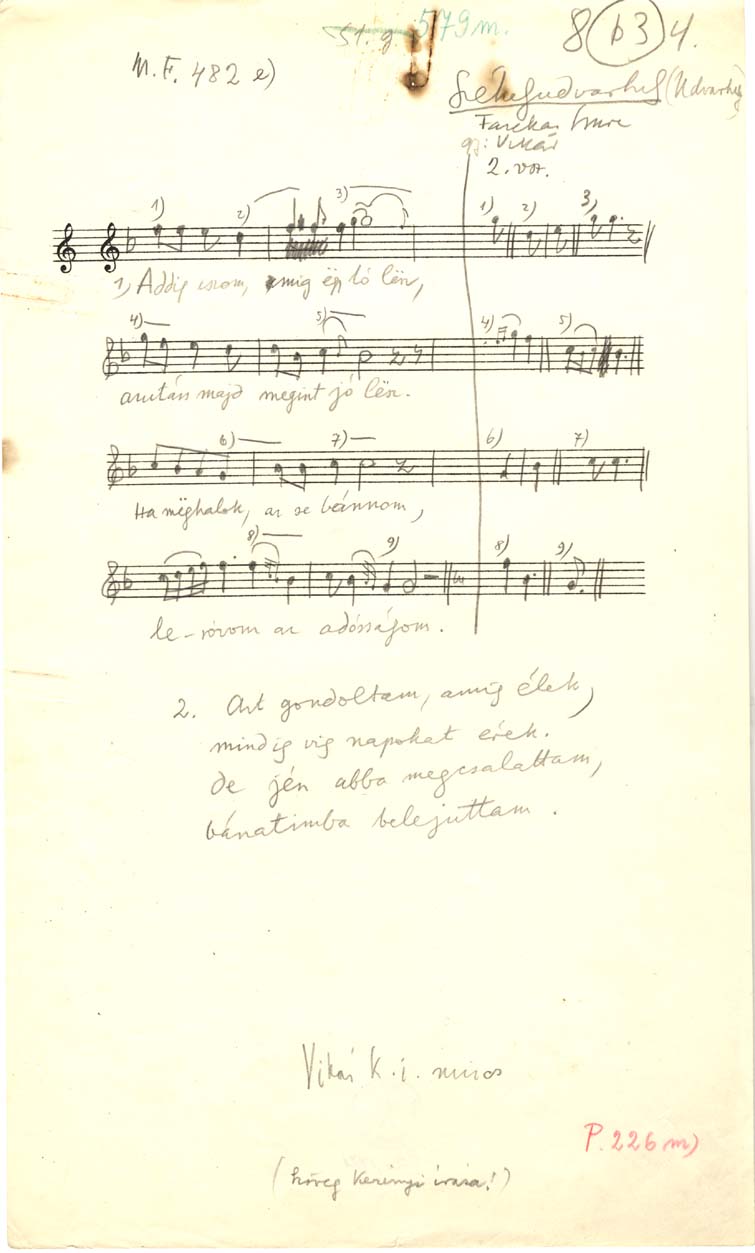 579m.
8 b3 4.
M.F. 482 e)
Székelyudvarhely (Udvarhely
Farkas Imre
gy: Vikár
2. vsz.
1) 2) 3) 1) 2) 3)
1) Addig iszom, amig ëgy ló lësz,
4) 5) 4) 5)
azután majd megint jó lësz.
6) 7) 6) 7)
Ha mëghalok, az se bánnom,
8) 9) 8) 9)
le-róvom az adósságom.
2. Azt gondoltam, amíg élek,
mindig vig napokat érek.
De jén abba megcsalattam,
bánatimba belejuttam.
Vikár K. i.
P. 226 m)
(Szöveg Kerényi írása!)